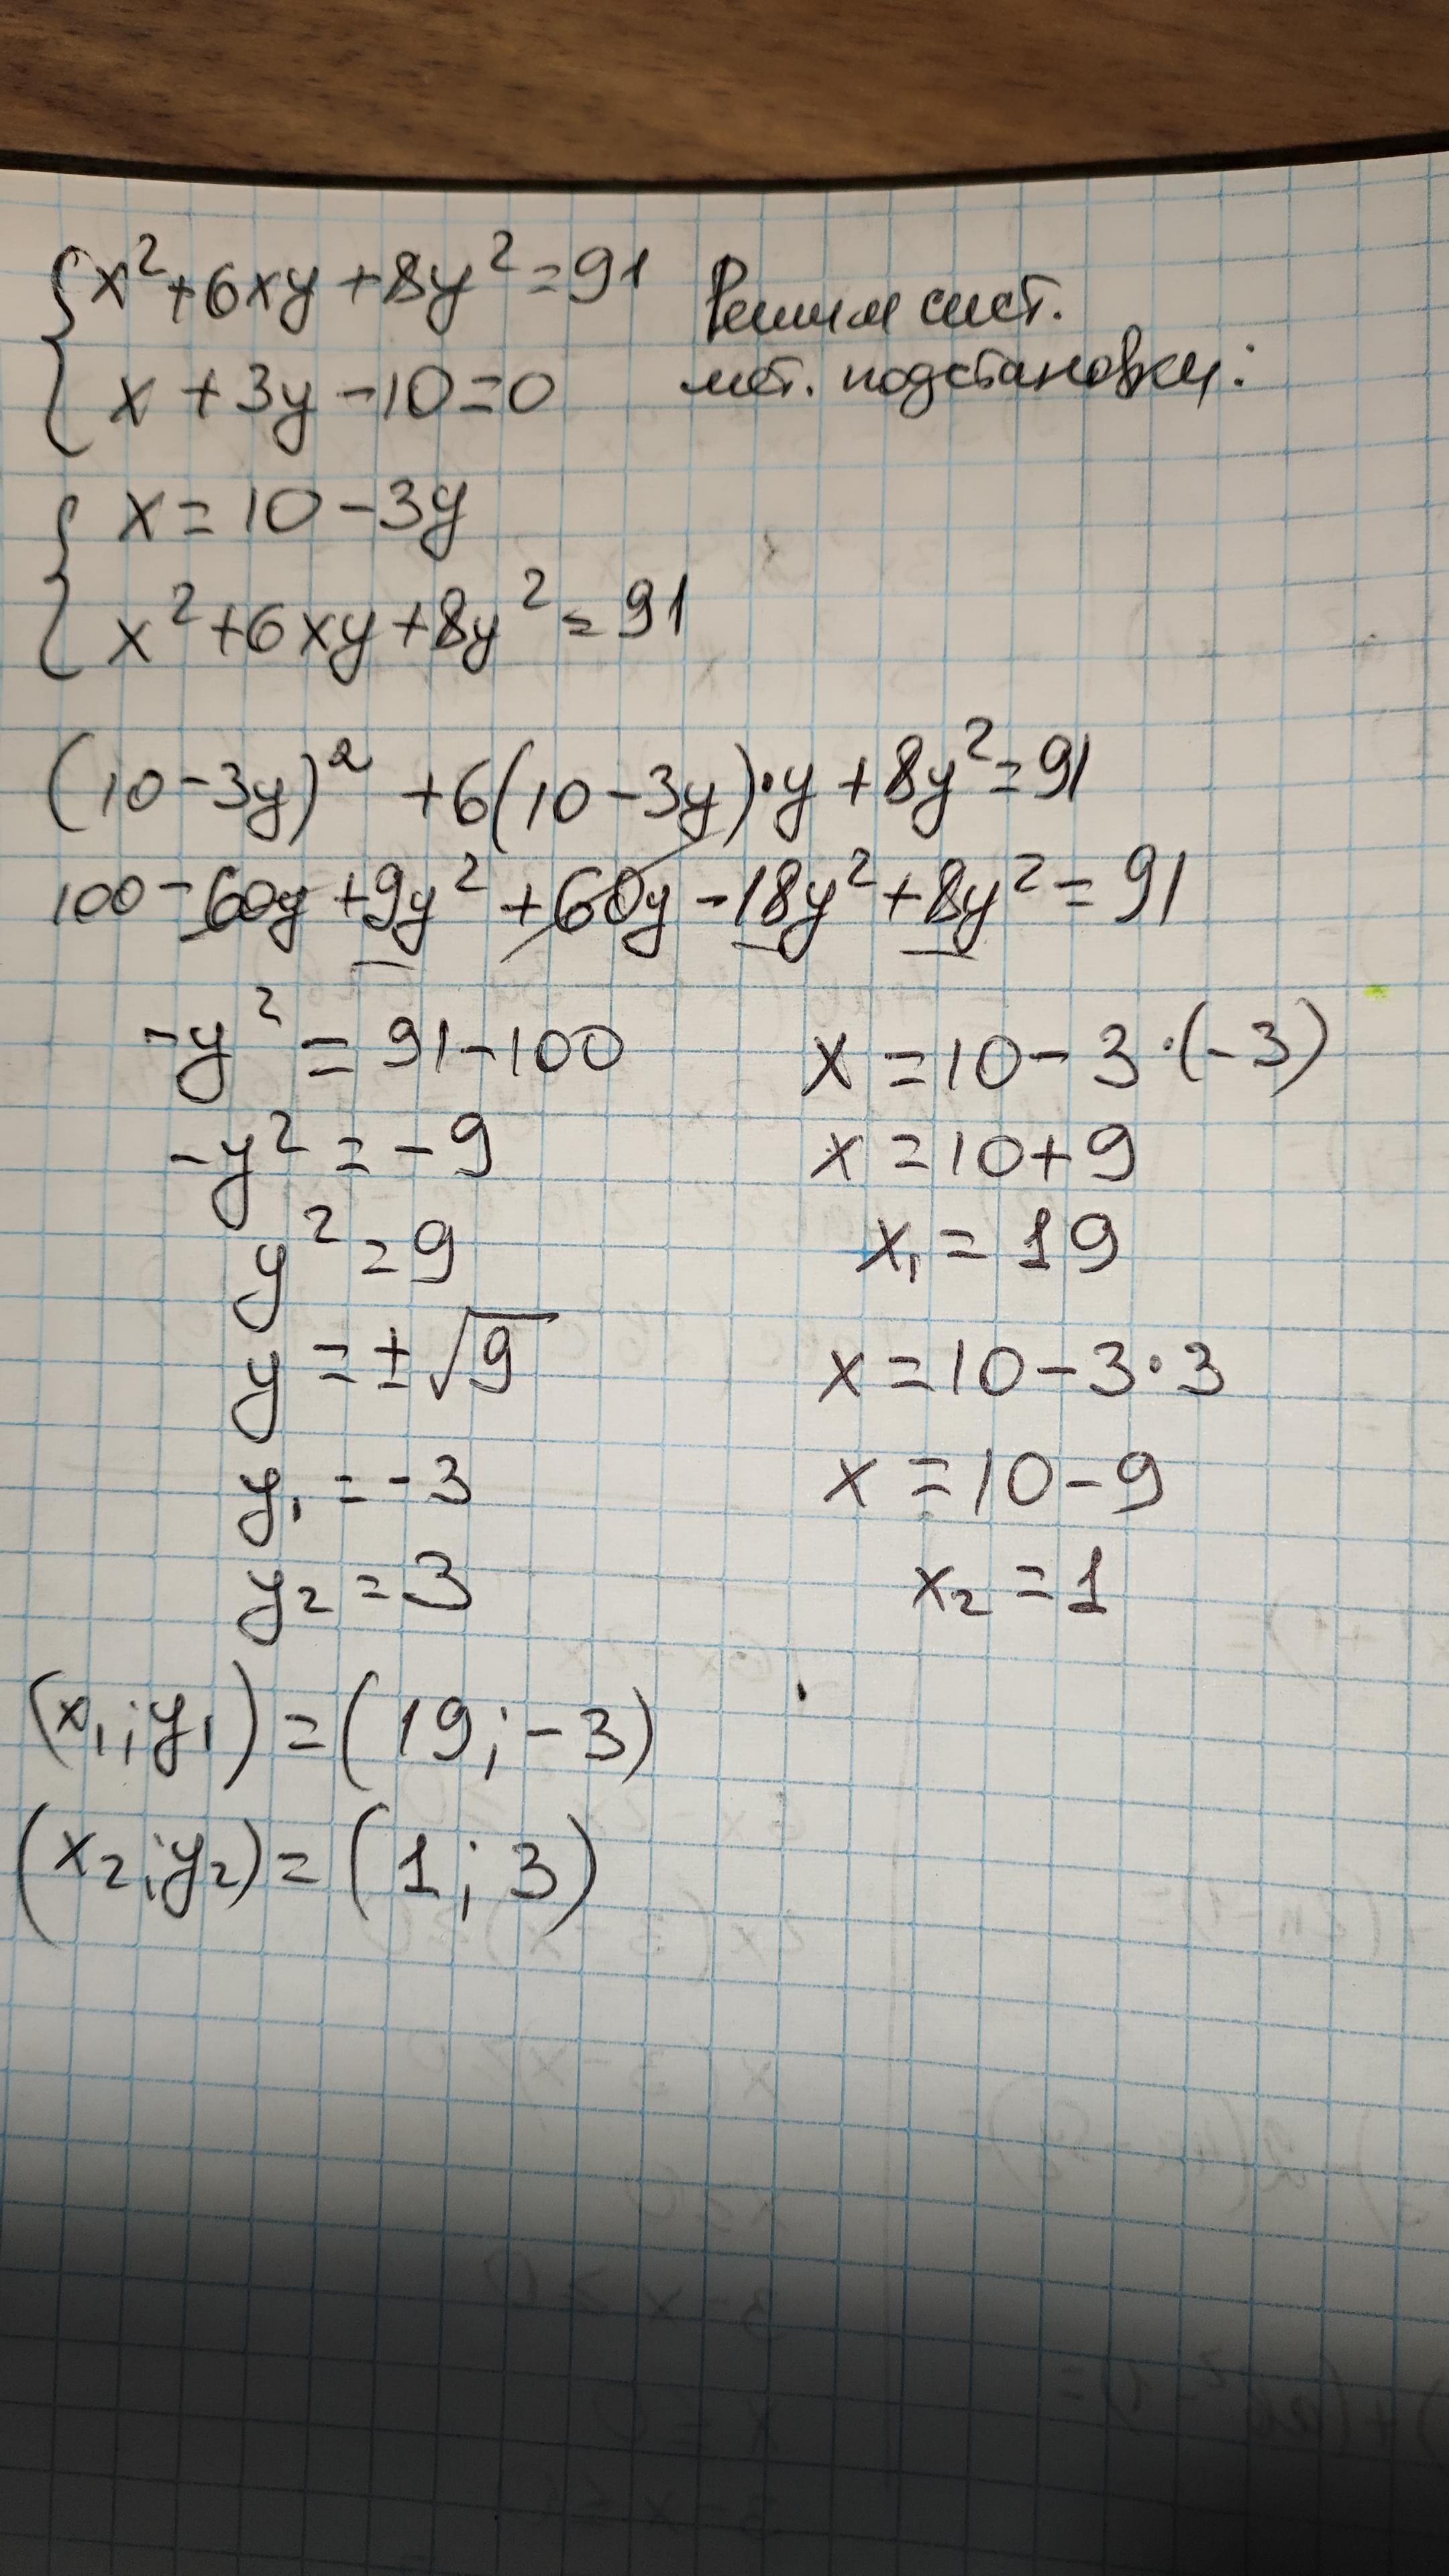 x² + 6xy + 8y² = 91 Решим сист.
x + 3y - 10 = 0 мет. подстановки:
x = 10 - 3y
x² + 6xy + 8y² = 91
(10 - 3y)² + 6(10 - 3y)·y + 8y² = 91
100 - 60y + 9y² + 60y - 18y² + 8y² = 91
-y² = 91 - 100
-y² = -9
y² = 9
y = ±√9
y₁ = -3
y₂ = 3
x = 10 - 3·(-3)
x = 10 + 9
x₁ = 19
x = 10 - 3·3
x = 10 - 9
x₂ = 1
(x₁; y₁) = (19; -3)
(x₂; y₂) = (1; 3)